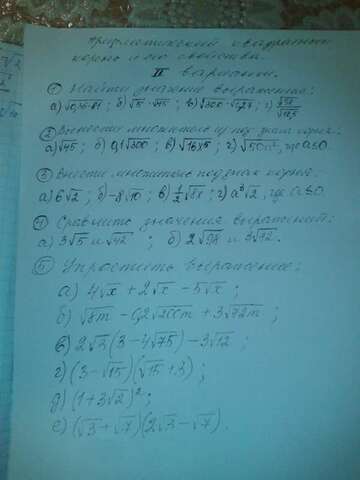 Арифметический квадратный
корень и его свойства.
II вариант.
① Найти значение выражения:
а) √0,36·81 ; б) √5 · √45 ; в)
② Вынести множитель из под знака корня:
а) √45 ; б) 0,1√300 ; в) √16x⁵ ; г)
③ Внести множитель под знак корня:
а) 6√2 ; б) -8√10 ; в) 1/2 √8x ; г) a³√2, где a≤0.
④ Сравнить значения выражений:
а) 3√5 и √42 ; б) 2√98 и 3√72.
⑤ Упростить выражение:
а) 4√x + 2√x - 5√x ;
б) √8m - 0,2√200m + 3√72m ;
в) 2√3 (3 - 4√75) - 3√12 ;
г) (3 - √15)(√15 + 3) ;
д) (1 + 3√2)² ;
е) (√3 + √7)(2√3 - √7).